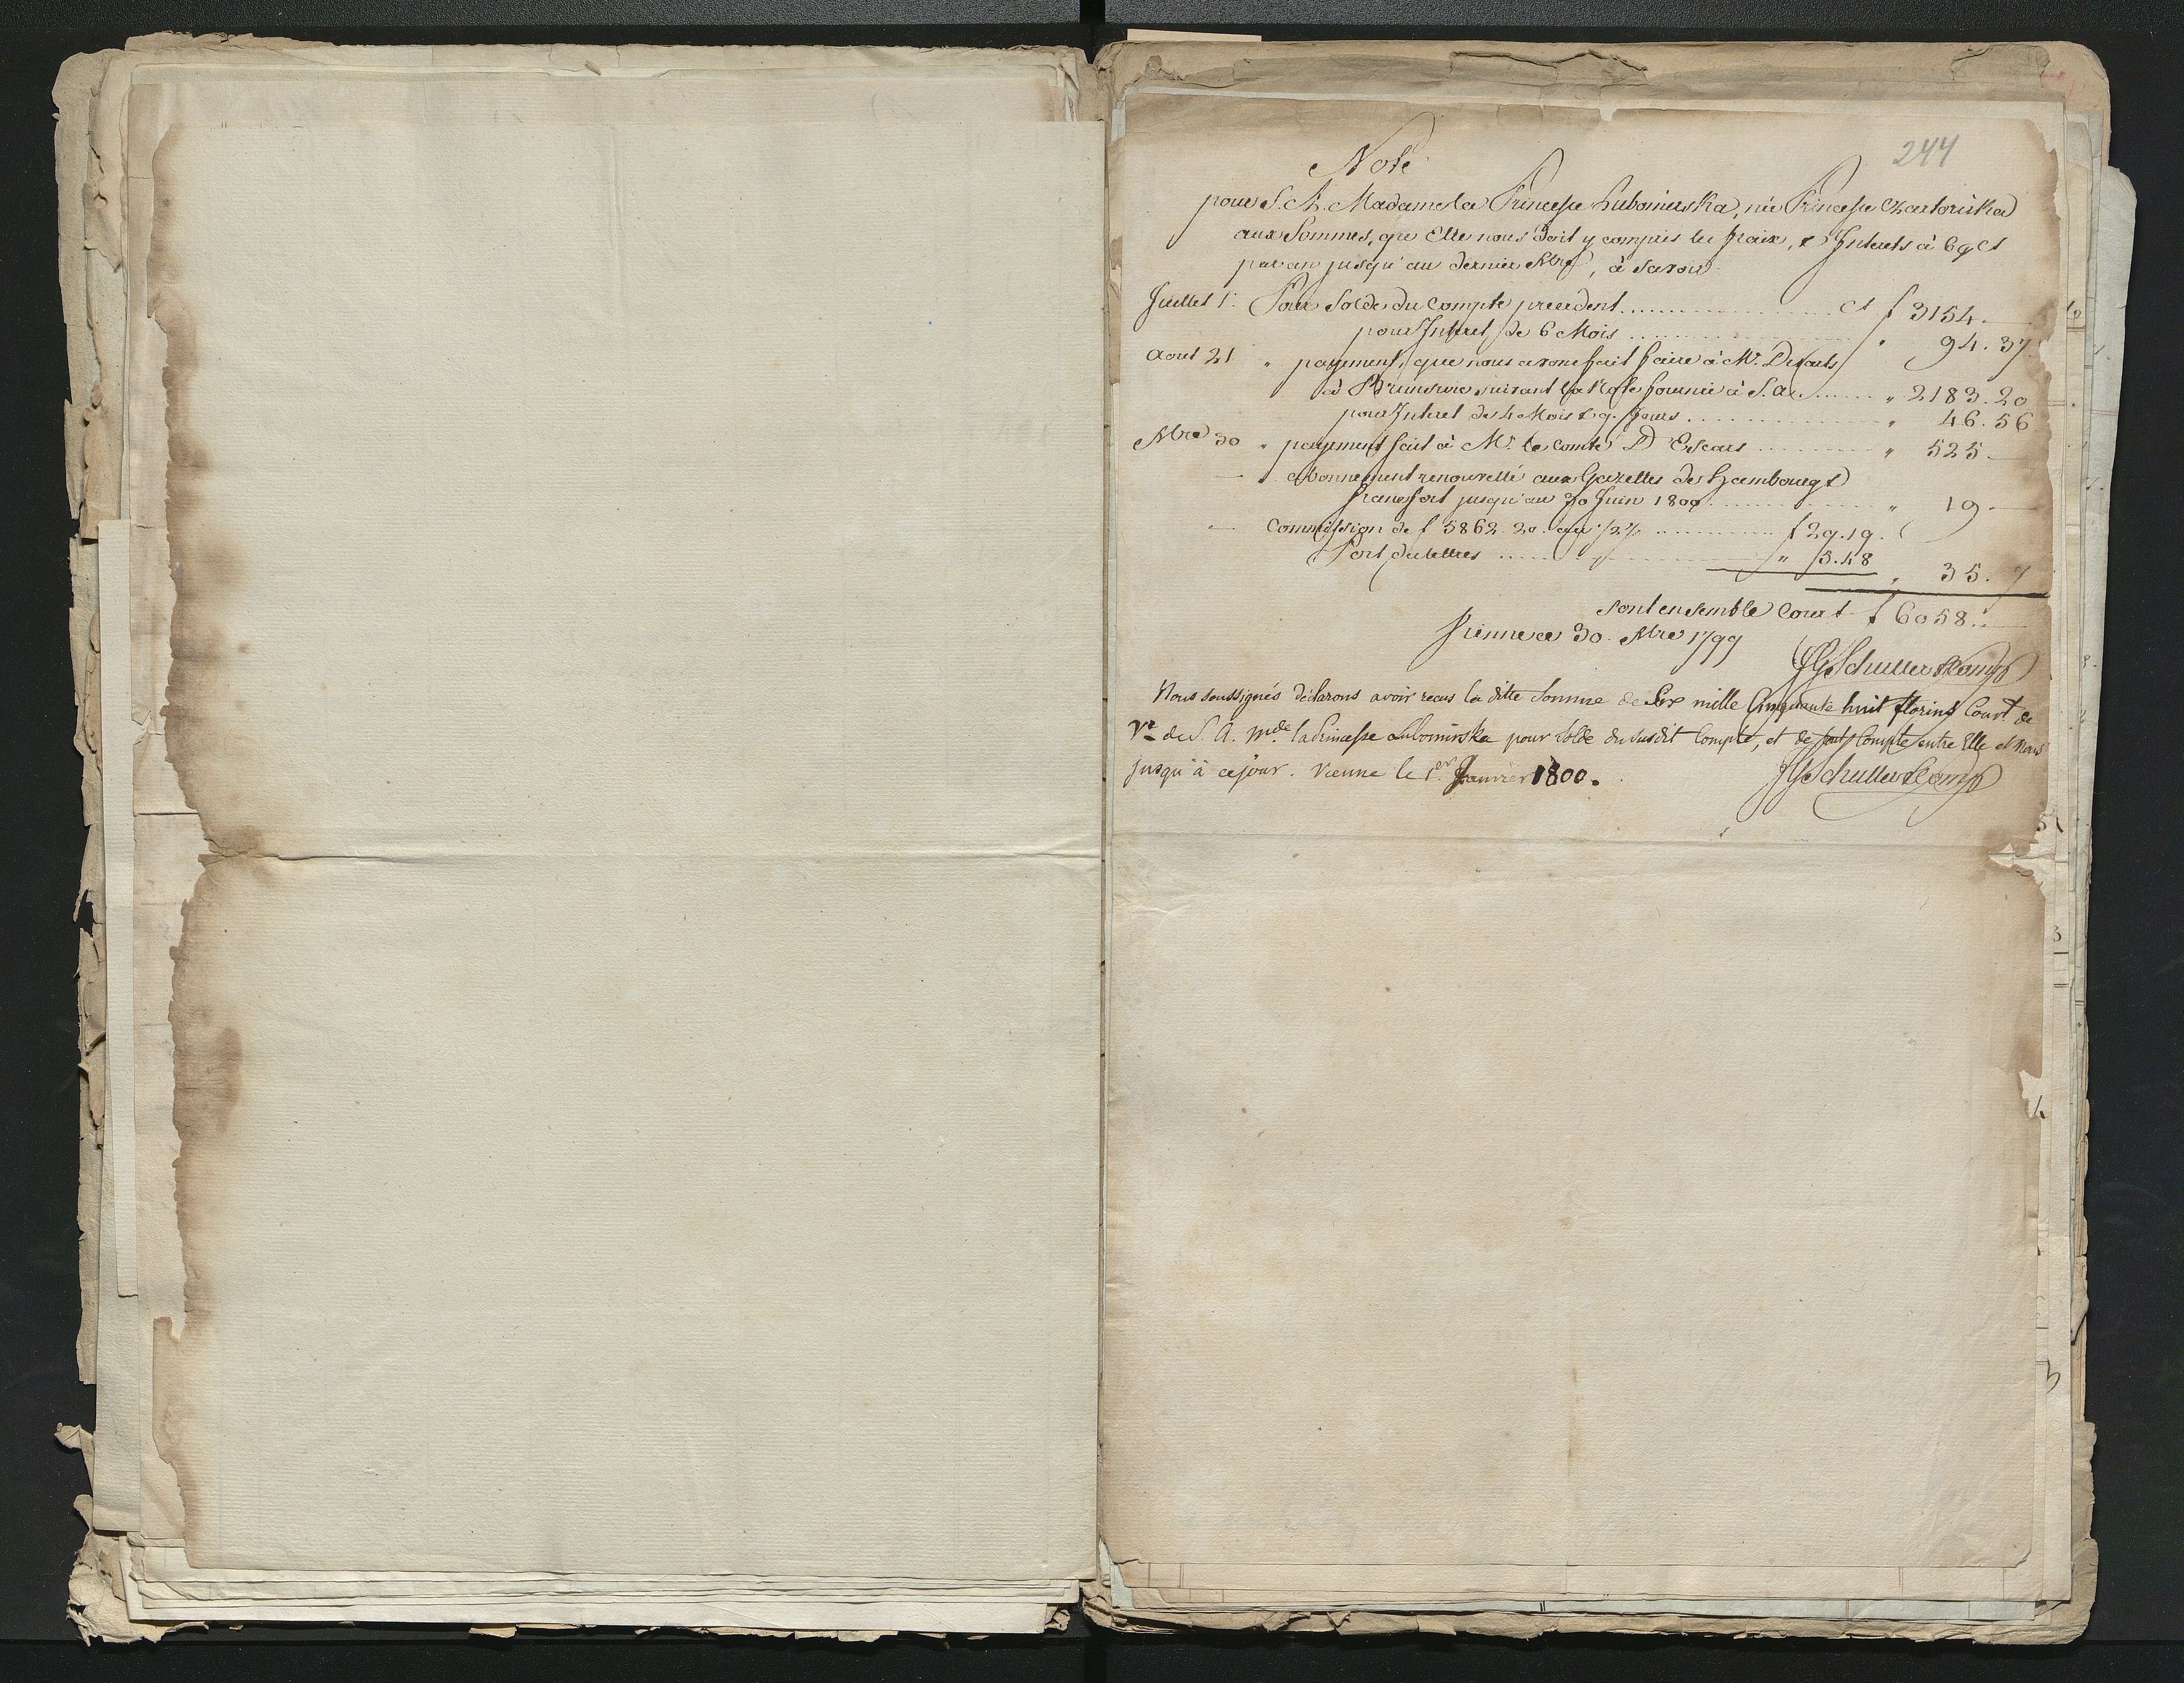 244
Note
pour S. A. Madame la Princesse Lubomirska, née Princesse Chartoriska
aux Sommes, que Elle nous doit y compris les fraix, & Interets à 6 p Ct
par an jusqu'au dernier Xbre, à savoir
Juillet 1. Pour Solde du Compte precedent ........ Ct f 3154.—
pour Interet de 6 Mois ........ " 94.37
Aout 21 " payement, que nous avons fait faire à Mr.
à Brunsvic suivant la Note fournie à S. A. ...... " 2183.20
pour Interet de 4 Mois & 9. Jours ........ " 46.56
Xbre 30 " payement fait à Mr. le Comte D'Escars ........ " 525.—
— " abonnement renouvellé aux Gazettes de Hambourg &
Francfort jusqu'au 30 Juin 1800 ........ " 19.—
— Commission de f 5862.20. au 1/2 % ........ f 29.19.
Port de lettres ........ " 5.48
" 35.7
sont ensemble Court f 6058.—
Vienne ce 30. Xbre 1799
JG Schuller & Comp
Nous soussignés déclarons avoir recus la ditte Somme de Six mille Cinquante huit florins Court de
Vne de S. A. Mde la Princesse Lubomirska pour Solde du susdit Compte, et de tout Compte entre Elle et Nous
jusqu'à ce jour. Vienne le 1er Janvier 1800.
JG Schuller & Comp